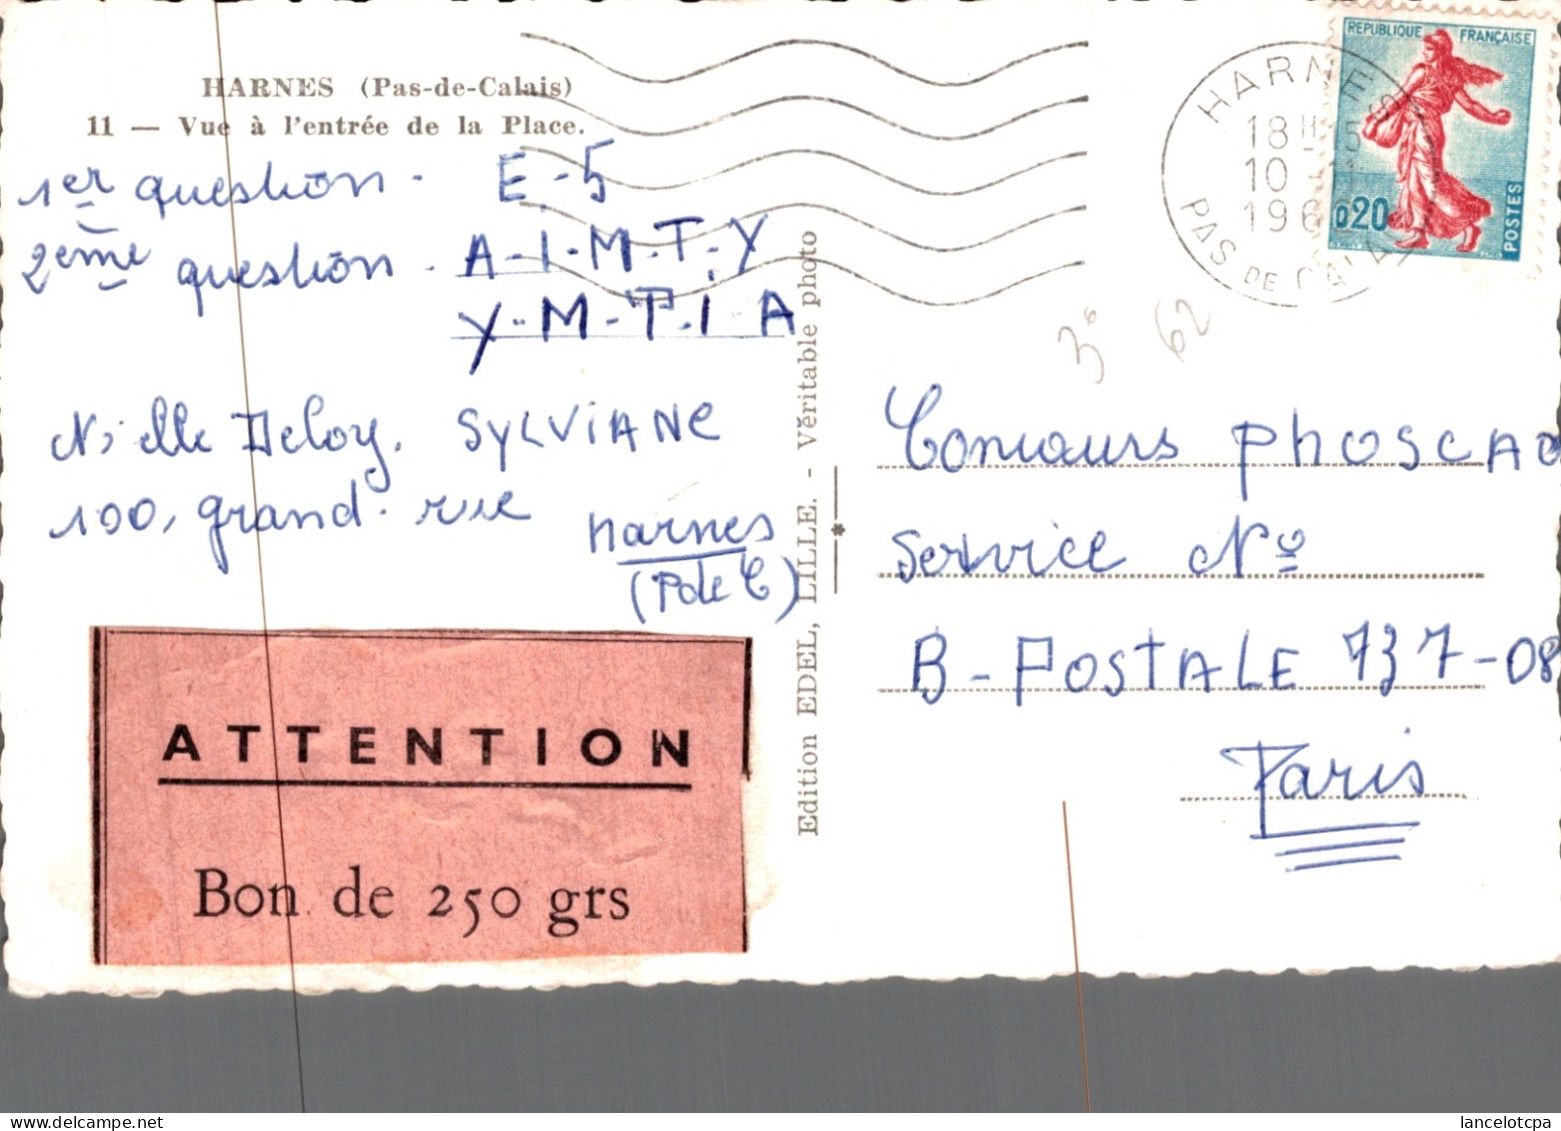 HARNES (Pas-de-Calais)
11 — Vue à l'entrée de la Place.
1er question - E.5
2ème question - A-I-M-T-Y
Y-M-T-I-A
Deloy. SYLVIANE
100, grand-rue
Harnes
(P de C)
ATTENTION
Bon de 250 grs
Edition EDEL, LILLE. - Véritable photo
HARNES
18 H
10
196
PAS DE CALAIS
REPUBLIQUE FRANÇAISE
0,20
POSTES
3°
62
Concours PHOSCAO
Service Nº
B-POSTALE 737-08
Paris
lancelotcpa